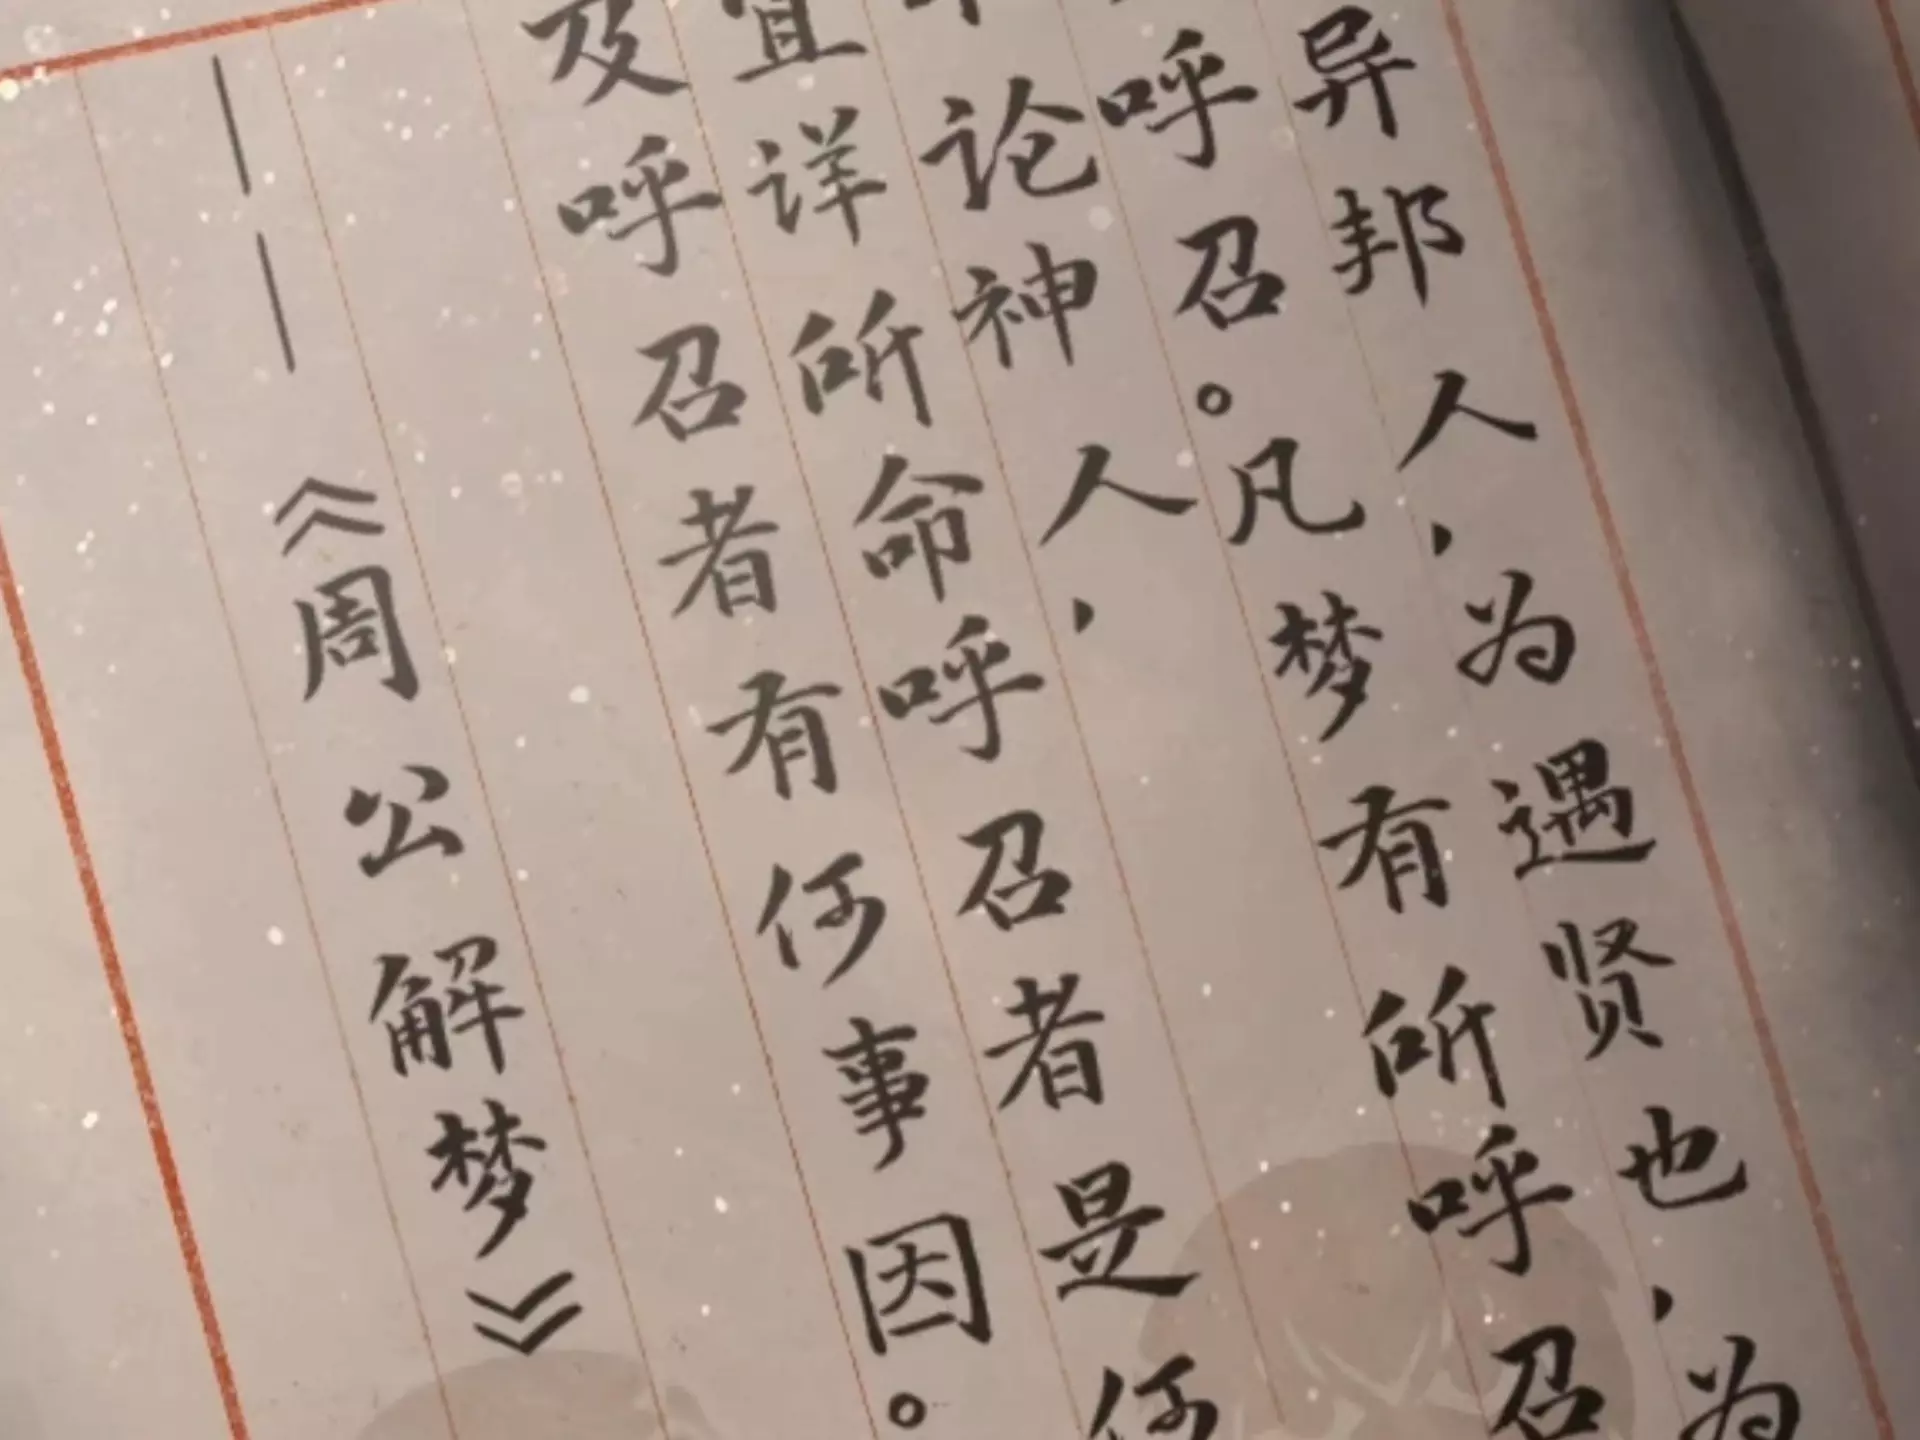 异邦人，为遇贤也，为
呼召。凡梦有所呼召
论神人，
宜详所命呼召者是何
及呼召者有何事因。
——《周公解梦》